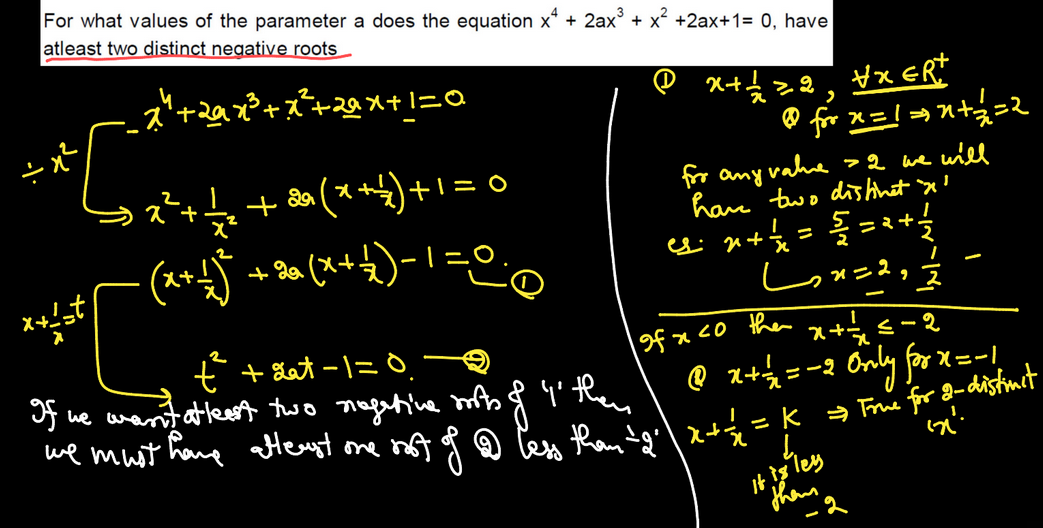 For what values of the parameter a does the equation x⁴ + 2ax³ + x² +2ax+1= 0, have
atleast two distinct negative roots
x⁴+2ax³+x²+2ax+1=0
÷x²
⇒ x²+1/x² + 2a(x+1/x)+1=0
(x+1/x)² + 2a(x+1/x)-1=0. ①
x+1/x=t
t² + 2at -1=0. ②
If we want atleast two negative roots of '1' then
we must have atleast one root of ② less than '-2'
① x+1/x ≥2, ∀x∈R⁺
@ for x=1 ⇒ x+1/x=2
for any value >2 we will
have two distinct 'x'
eg: x+1/x = 5/2 = 2+1/2
x=2, 1/2
If x<0 then x+1/x ≤-2
@ x+1/x=-2 Only for x=-1
x+1/x = K ⇒ True for 2-distinct
'x'
It is less
than
-2